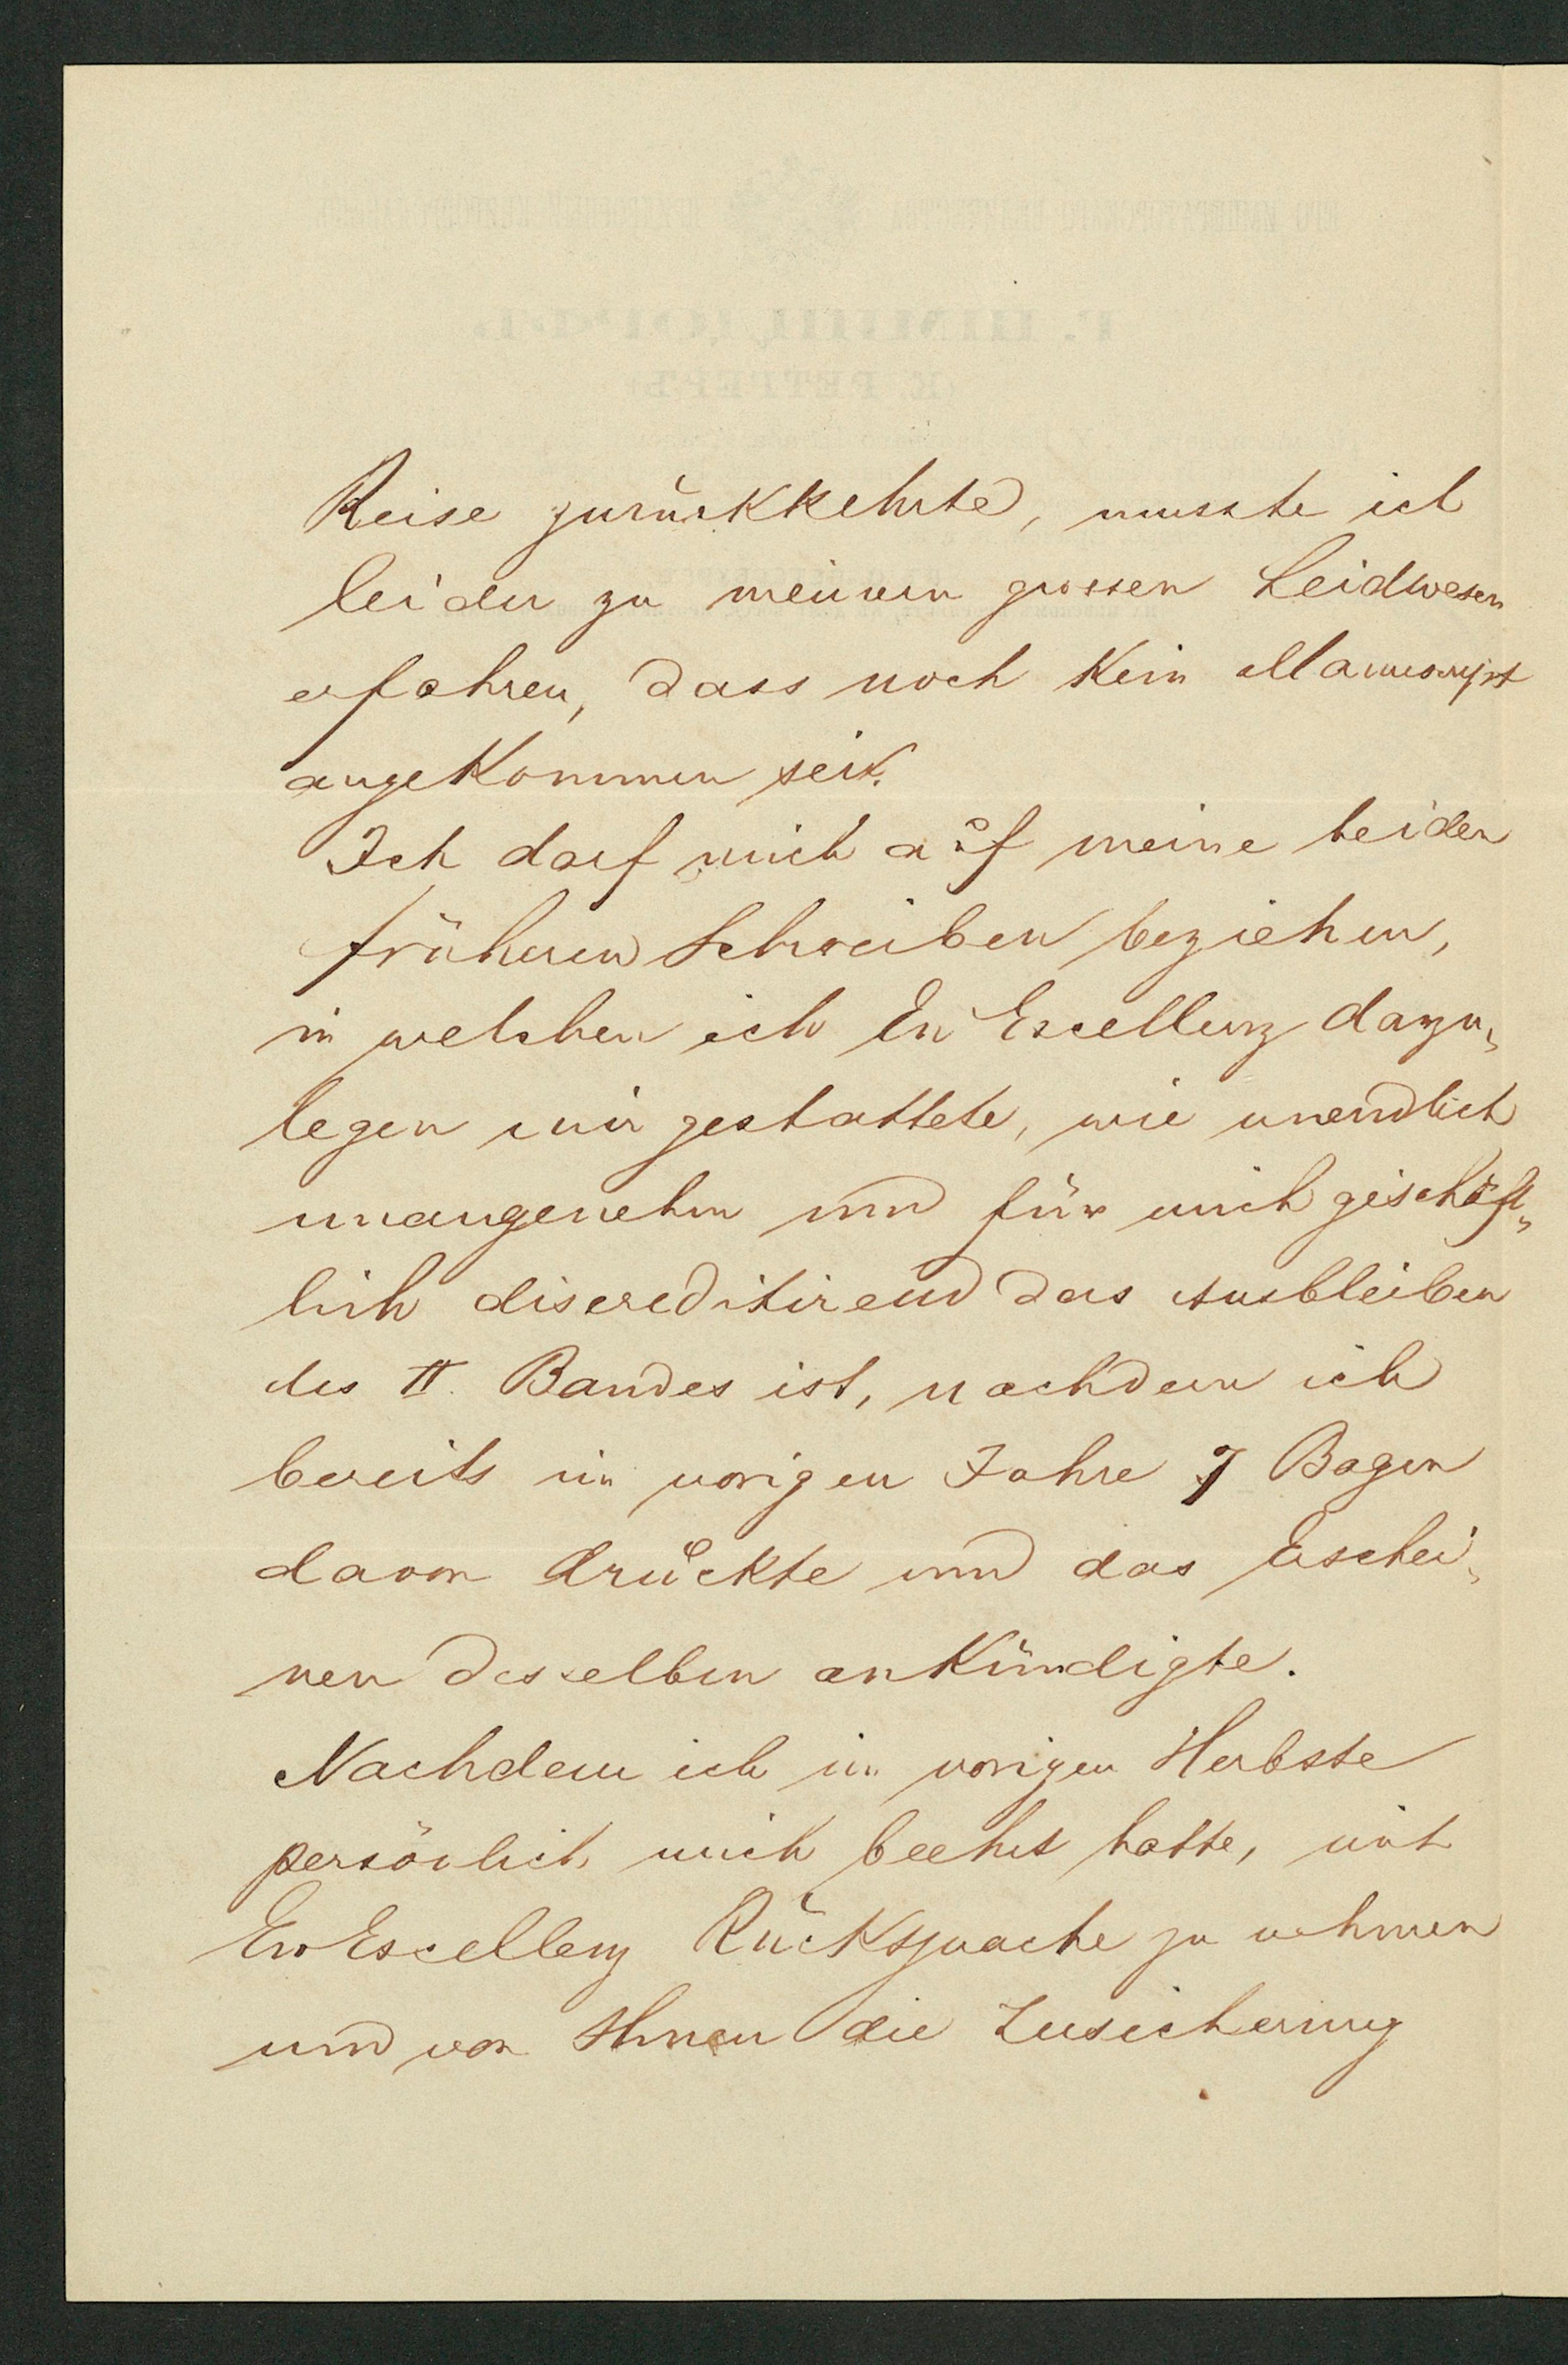 Reise zurückkehrte, musste ich
leider zu meinem grossen Leidwesen
erfahren, dass noch kein Manuscript
angekommen sei.
Ich darf mich auf meine beiden
früheren Schreiben beziehen,
in welchen ich Ew Excellenz darzu„
legen mir gestattete, wie unendlich
unangenehm und für mich geschäft„
lich discreditirend das Ausbleiben
des II. Bandes ist, nachdem ich
bereits im vorigen Jahre 7 Bogen
davon druckte und das Erschei„
nen desselben ankündigte.
Nachdem ich im vorigen Herbste
persönlich mich beehrt hatte, mit
Ew Excellenz Rücksprache zu nehmen
und von Ihnen die Zusicherung